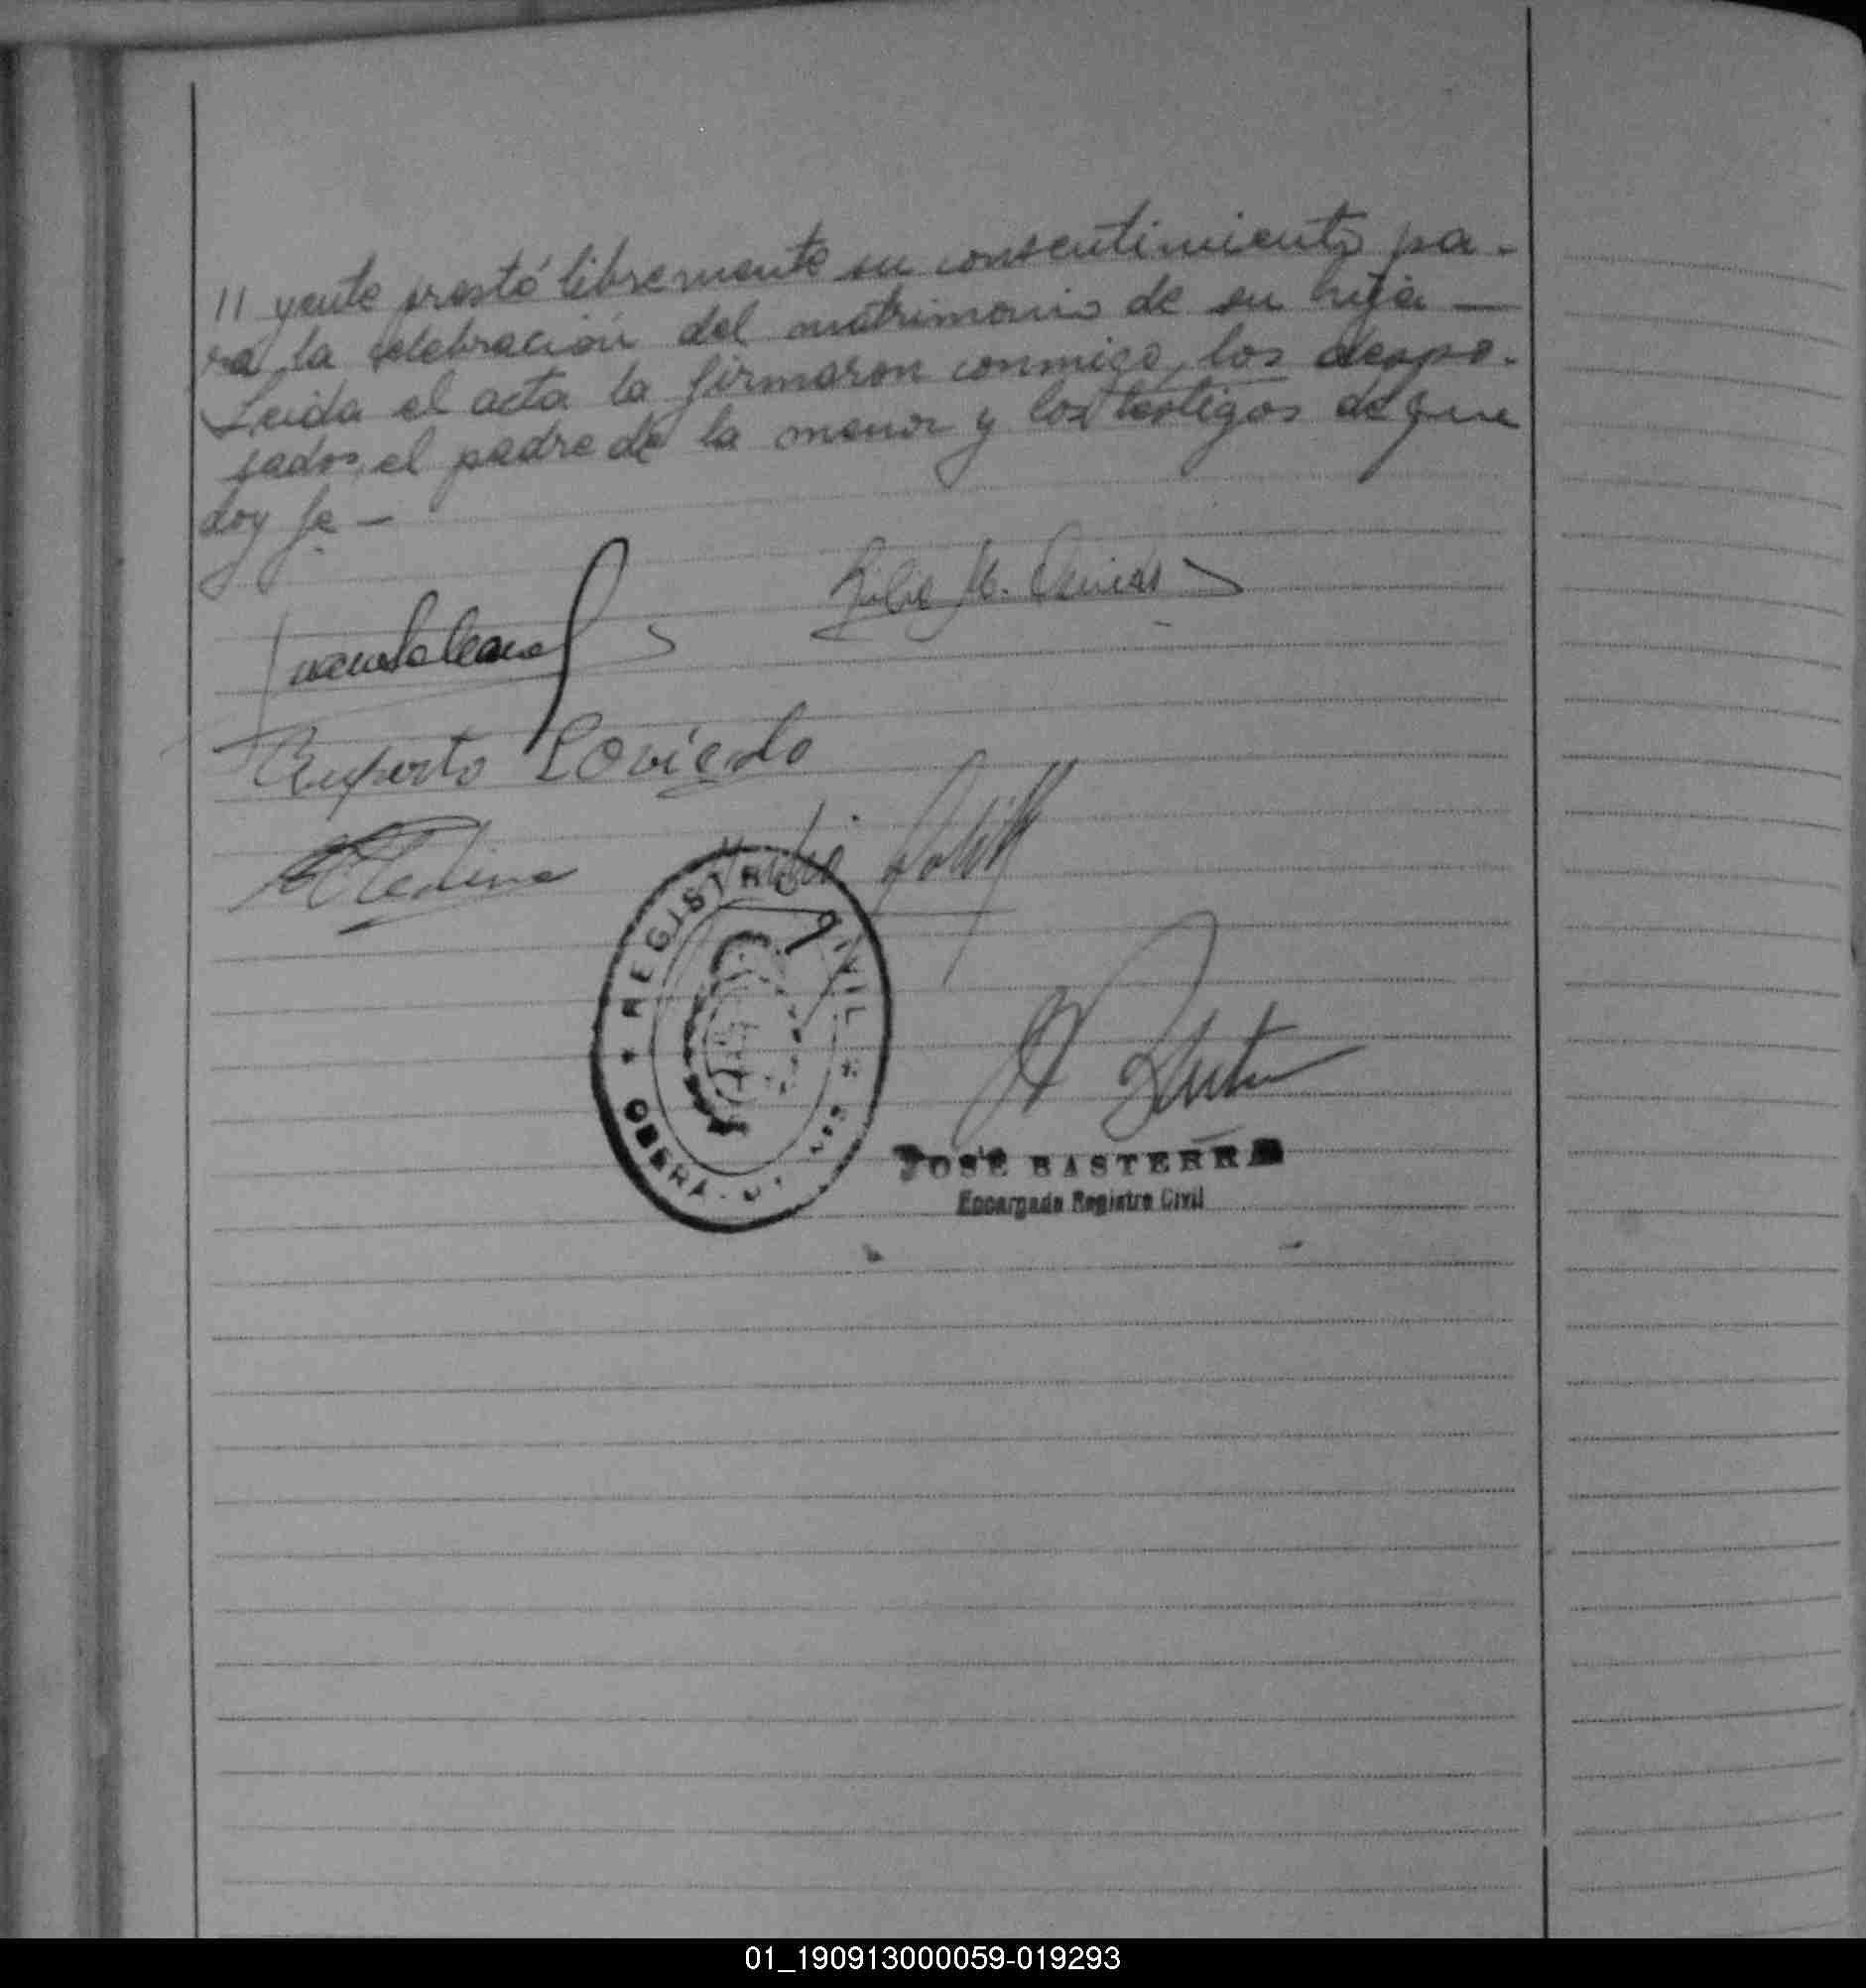 // yente prestó libremente su consentimiento pa-
ra la celebración del matrimonio de su hija —
Leida el acta la firmaron conmigo, los despo-
sados, el padre de la menor y los testigos de que
doy fe —
Ruperto Loviedo
REGISTRO CIVIL
OBERA
JOSÉ BASTERRA
Encargado Registro Civil
01_190913000059-019293